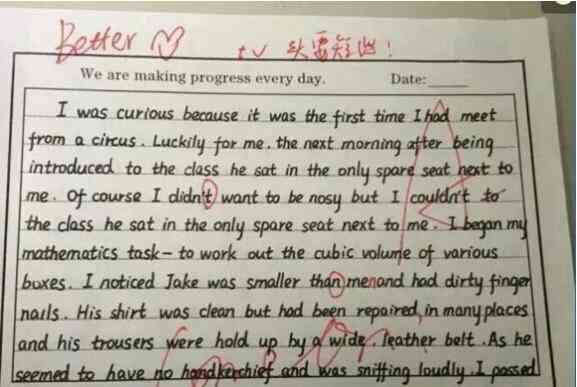 Better
tv 头要短些!
We are making progress every day. Date:
I was curious because it was the first time I had meet
from a circus. Luckily for me. the next morning after being
introduced to the class he sat in the only spare seat next to
me. Of course I didn't want to be nosy but I couldn't to
the class he sat in the only spare seat next to me. I began my
mathematics task- to work out the cubic volume of various
boxes. I noticed Jake was smaller than menand had dirty finger
nails. His shirt was clean but had been repaired, in many places
and his trousers were hold up by a wide, leather belt. As he
seemed to have no handkerchief and was sniffing loudly. I passed